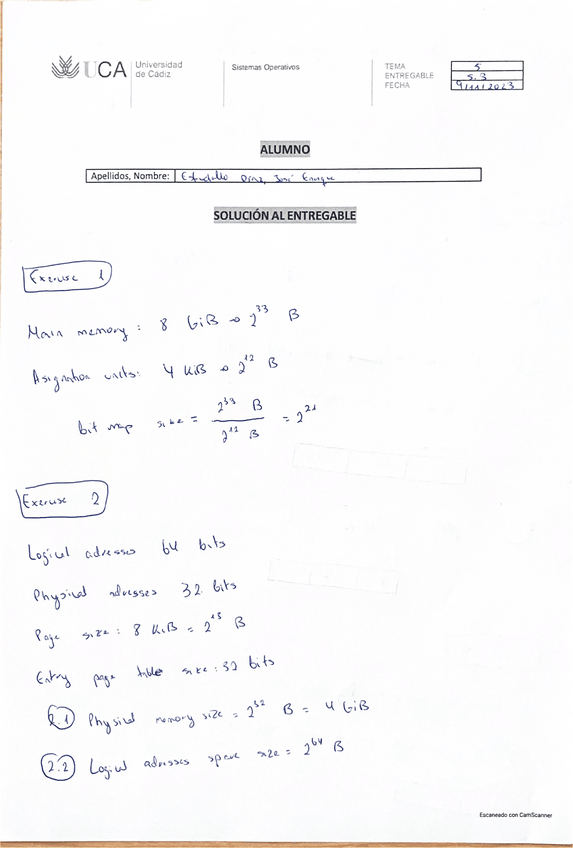 UCA
Universidad
de Cádiz
Sistemas Operativos
TEMA 5
ENTREGABLE 5.3
FECHA 9/11/2023
ALUMNO
Apellidos, Nombre: Díaz, José Enrique
SOLUCIÓN AL ENTREGABLE
Exercise 1
Main memory: 8 GiB → 2^33 B
Asignation units: 4 KiB → 2^12 B
bit map size = 2^33 B / 2^12 B = 2^21
Exercise 2
Logical adresses 64 bits
Physical adresses 32 bits
Page size: 8 KiB = 2^13 B
Entry page table size: 32 bits
2.1 Physical memory size = 2^32 B = 4 GiB
2.2 Logical adresses space size = 2^64 B
Escaneado con CamScanner